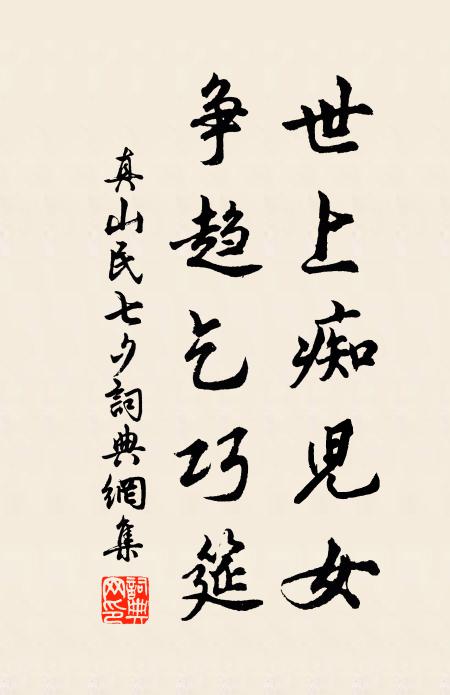 世上痴兒女
争趋乞巧筵
真山民七夕詞典網集
詞典網印